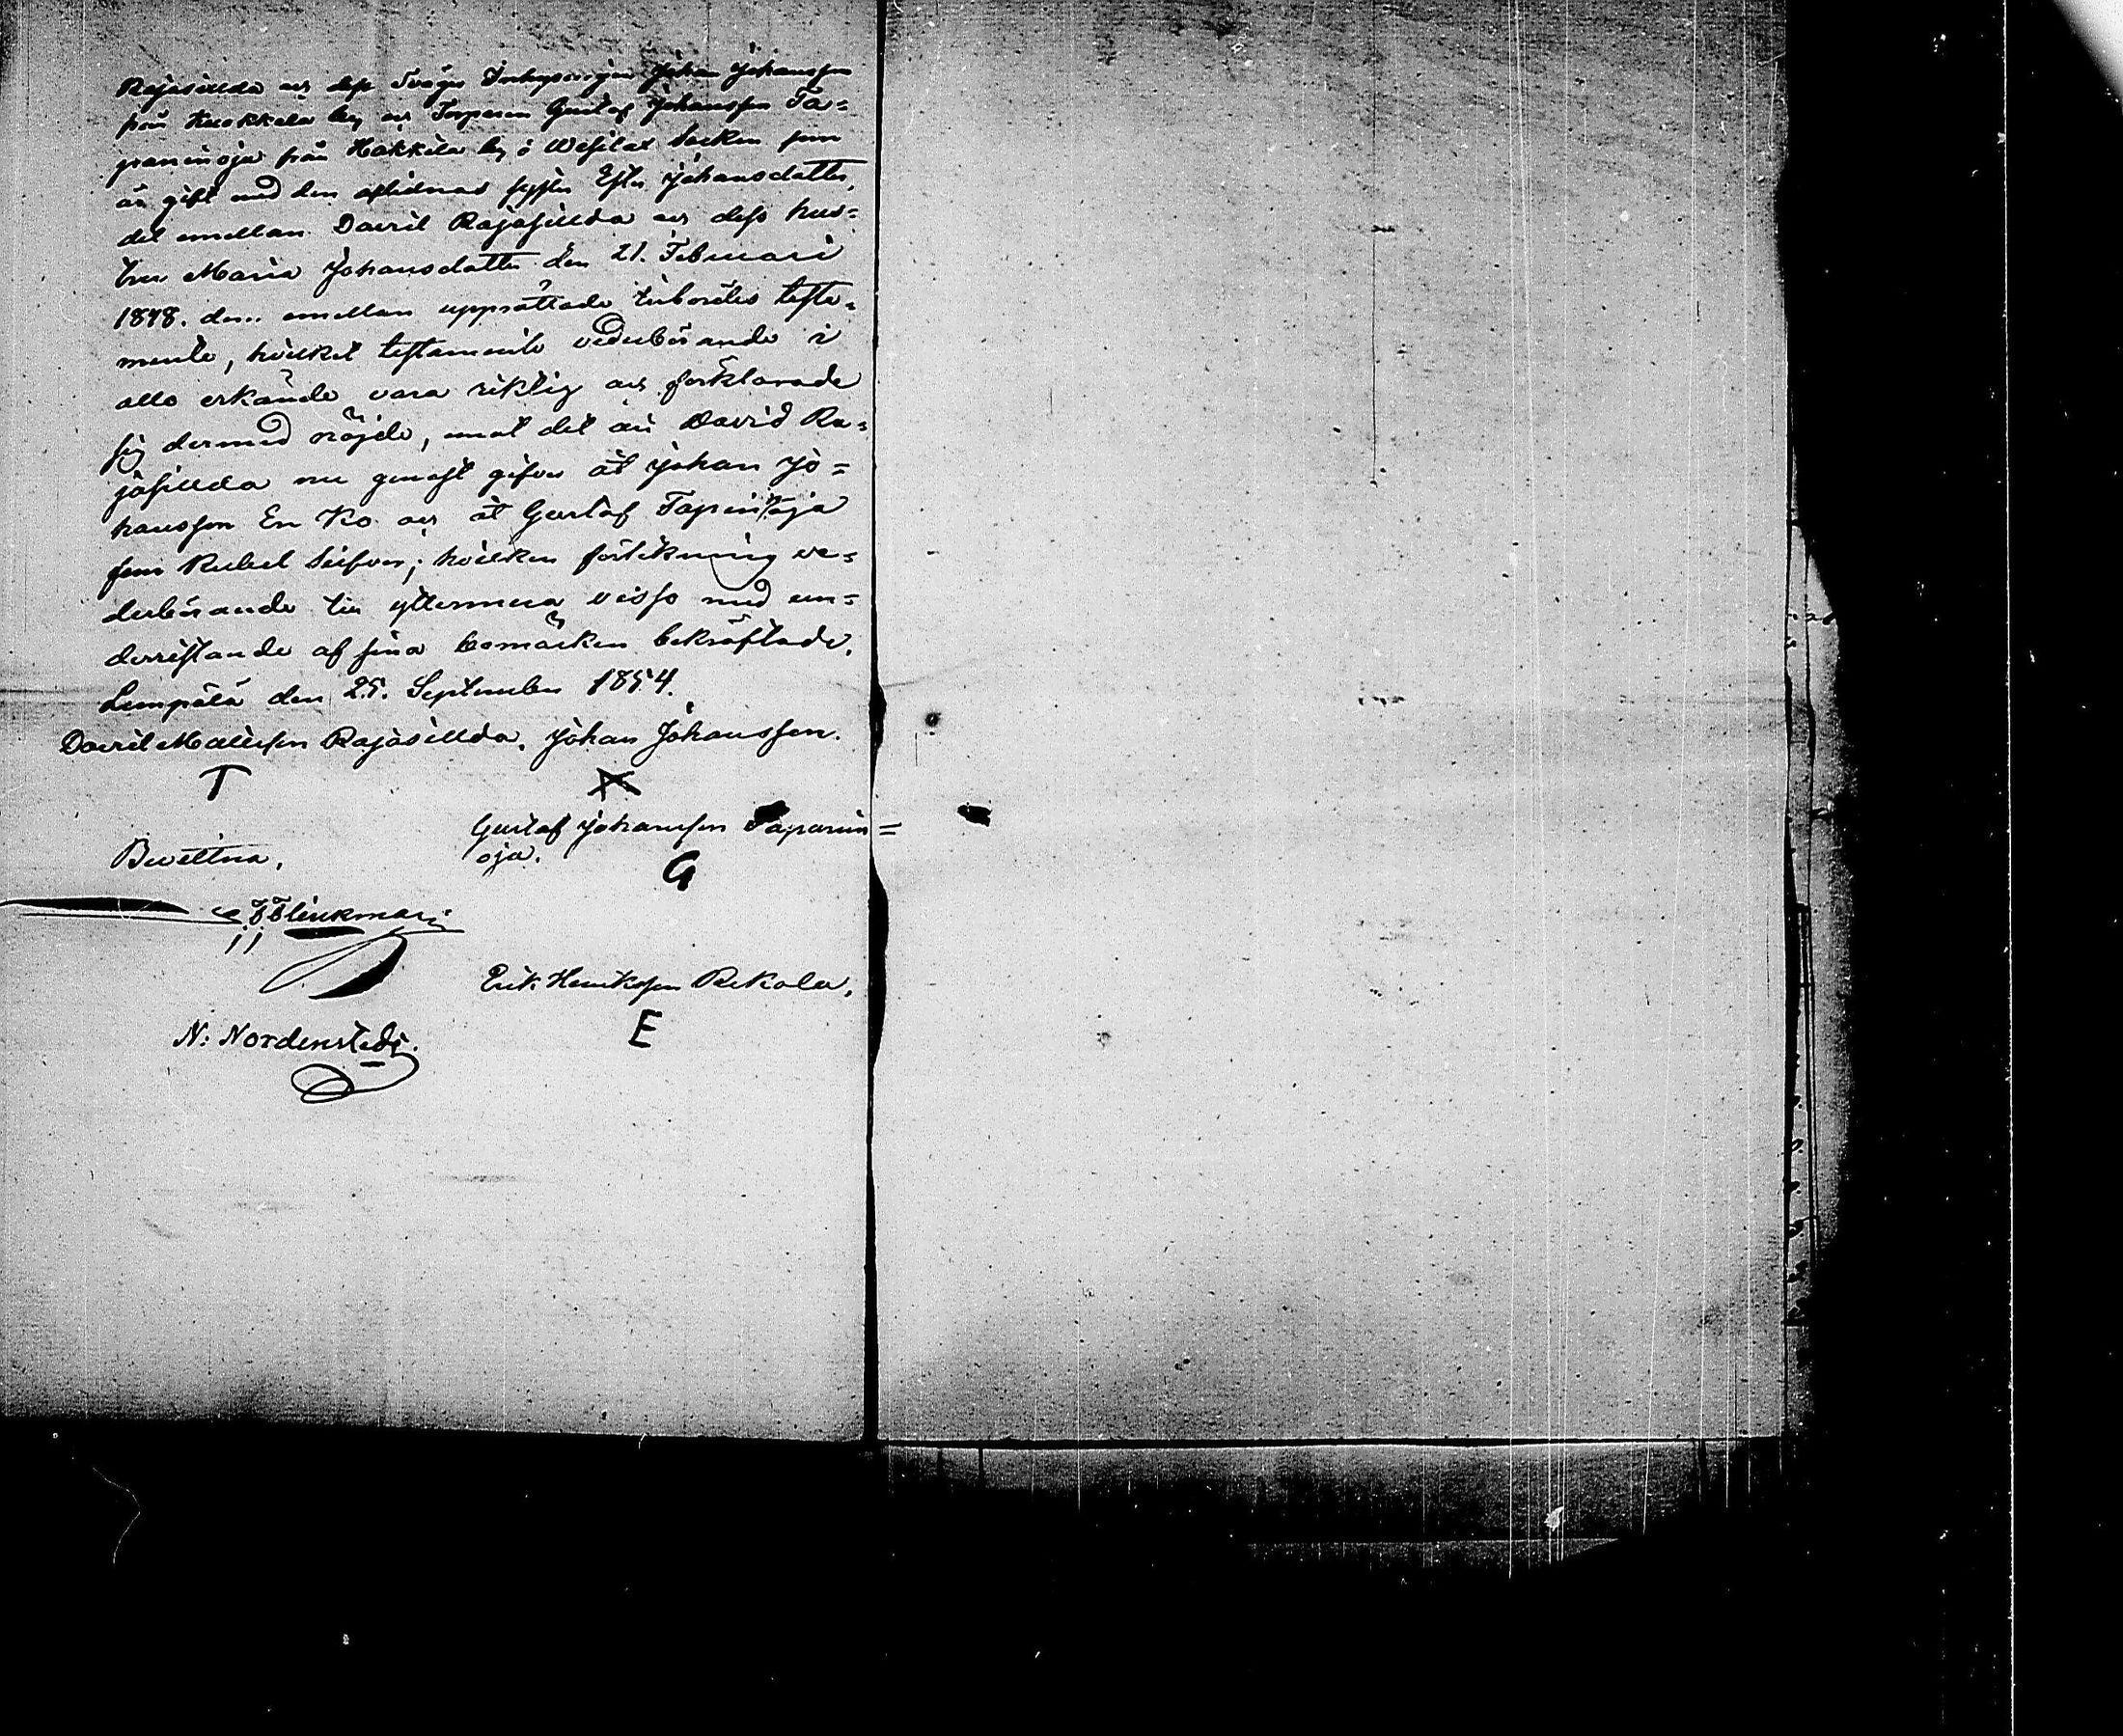 Rajasilda och dess Svåger Inhysingen Johan Johansson
från Kuokkala by och Torparen Gustaf Johansson Ta=
paninoja från Hakkila by i Wesilax Socken som
är gift med den aflidnas syster Ester Johansdotter,
det emellan David Rajasilda och dess hus=
tru Maria Johansdotter den 21. Februari
1848. dem emellan upprättade inbördes testa=
mente, hvilket testamente vederbörande i
allo erkände vara riktig och förklarade
sig dermed nöjde, emot det att David Ra=
jasilda nu genast gifver åt Johan Jo=
hansson En Ko och åt Gustaf Tapaninoja
fem Rubel Silfver; hvilken förlikning ve=
derbörande till yttermera visso med un=
derristande af sina bomärken bekräftade.
Lempälä den 25. September 1854.
David Mattsson Rajasilda. Johan Johansson.
T
Gustaf Johansson Tapanin=
Bevittna, oja.
G
F Flinkman
Erik Henriksson Rekola,
N: Nordenstedt.
E